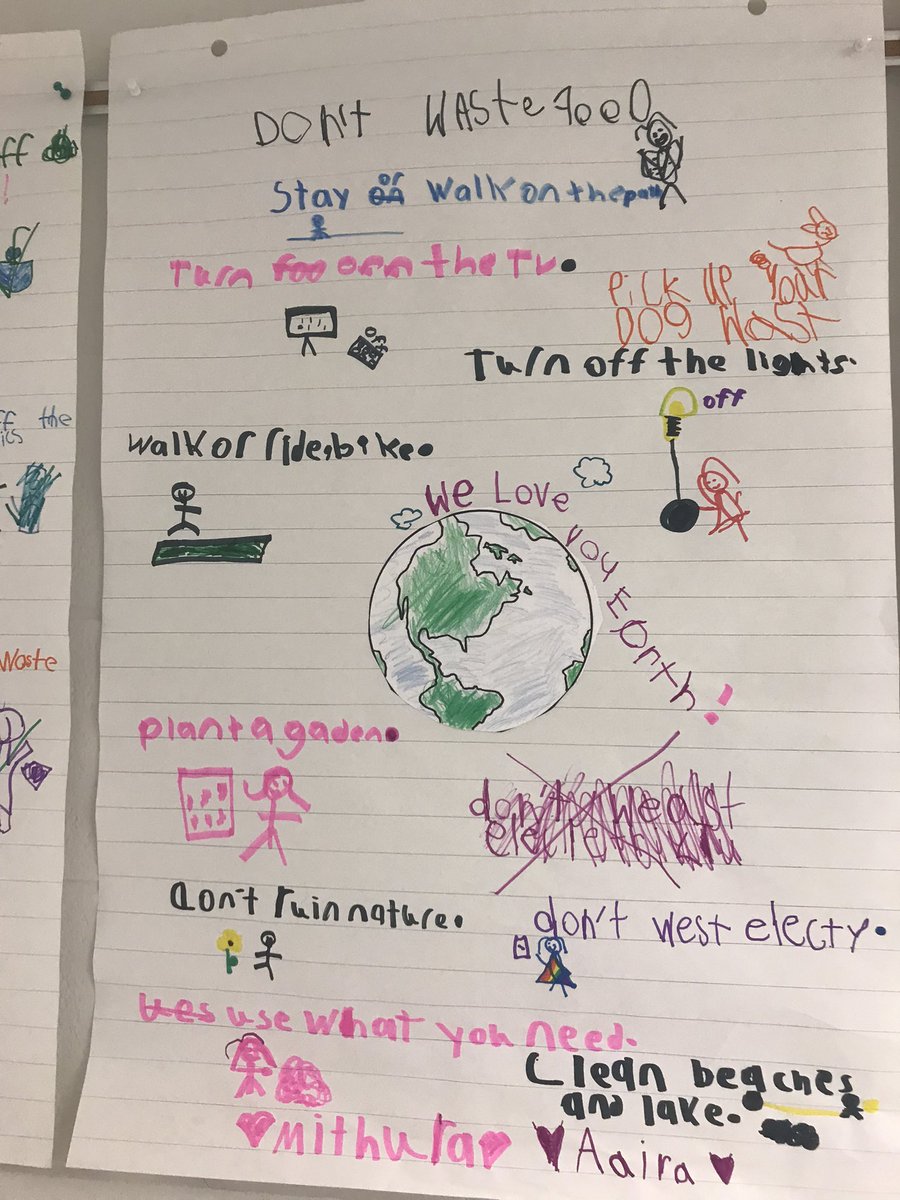 DON't WAste food
Stay or walk on the path
Turn off the TV.
off
Pick Up Your
DOg Wast
Turn off the lights.
off
walk or ride bike.
We Love you Earth!
plant a gaden.
don't ruin nature.
don't west electy.
use what you need.
Clean beaches
and lake.
mithura
Aaira
ff
ff the
ics
Waste